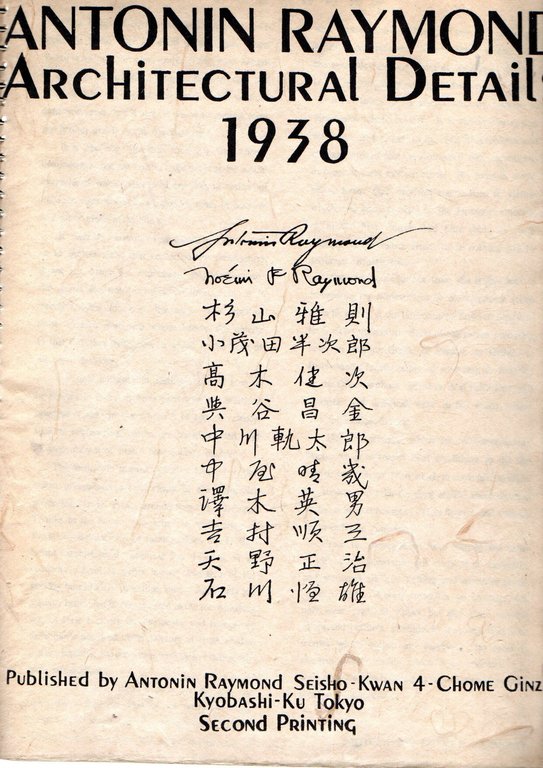 ANTONIN RAYMOND
ARCHITECTURAL DETAILS
1938
Antonin Raymond
Noémi P Raymond
杉山雅則
小茂田半次郎
高木健次
與谷昌金
中川軌太郎
中尾晴歳
澤木英男
吉村順三
天野正治
石川恒雄
Published by ANTONIN RAYMOND SEISHO-KWAN 4-CHOME GINZ
KYOBASHI-KU TOKYO
SECOND PRINTING